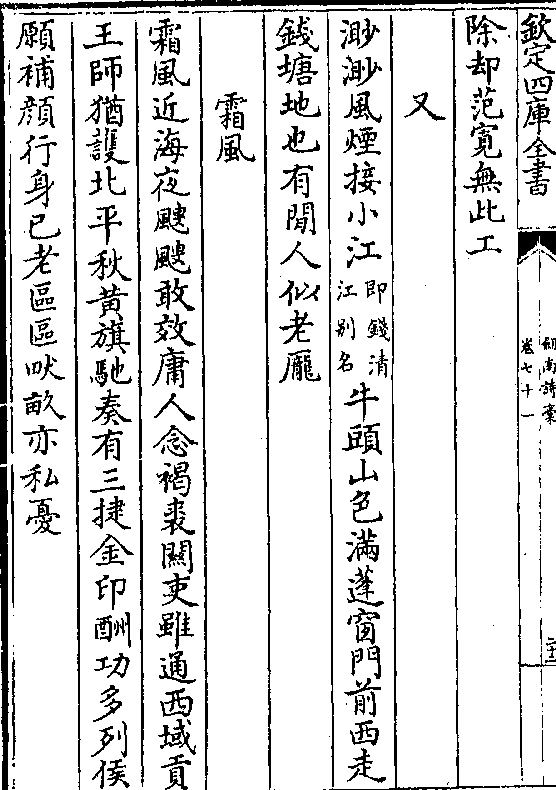 欽定四庫全書
劒南詩稾
卷七十一
二十二
除却范寛無此工
又
渺渺風煙接小江即錢清江别名牛頭山色滿蓬窗門前西走
錢塘地也有聞人似老龎
霜風
霜風近海夜颼颼敢效庸人念褐裘闗吏雖通西域貢
王師猶護北平秋黄旗馳奏有三捷金印酬功多列侯
願補顔行身已老區區畎畝亦私憂